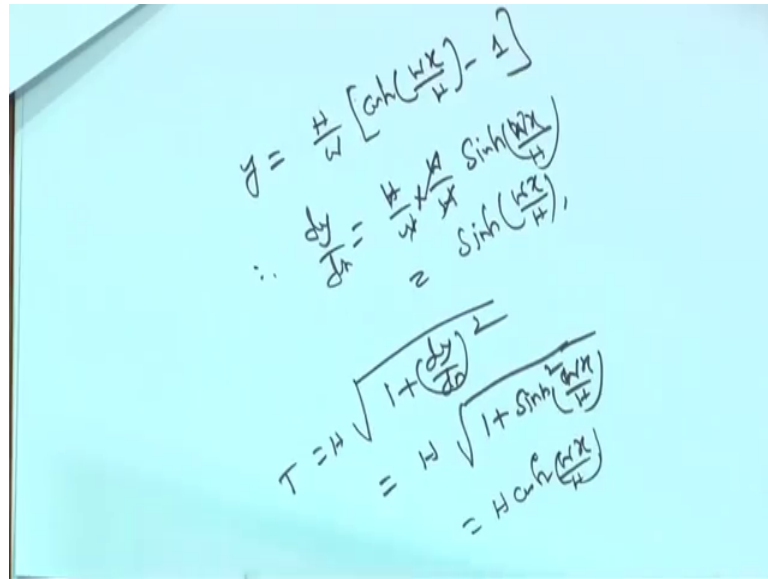 y = H/W [cosh(Wx/H) - 1]
∴ dy/dx = H/W × W/H Sinh(Wx/H)
= Sinh(Wx/H),
T = H √(1+(dy/dx)²)
= H √(1+Sinh²(Wx/H))
= H cosh(Wx/H)